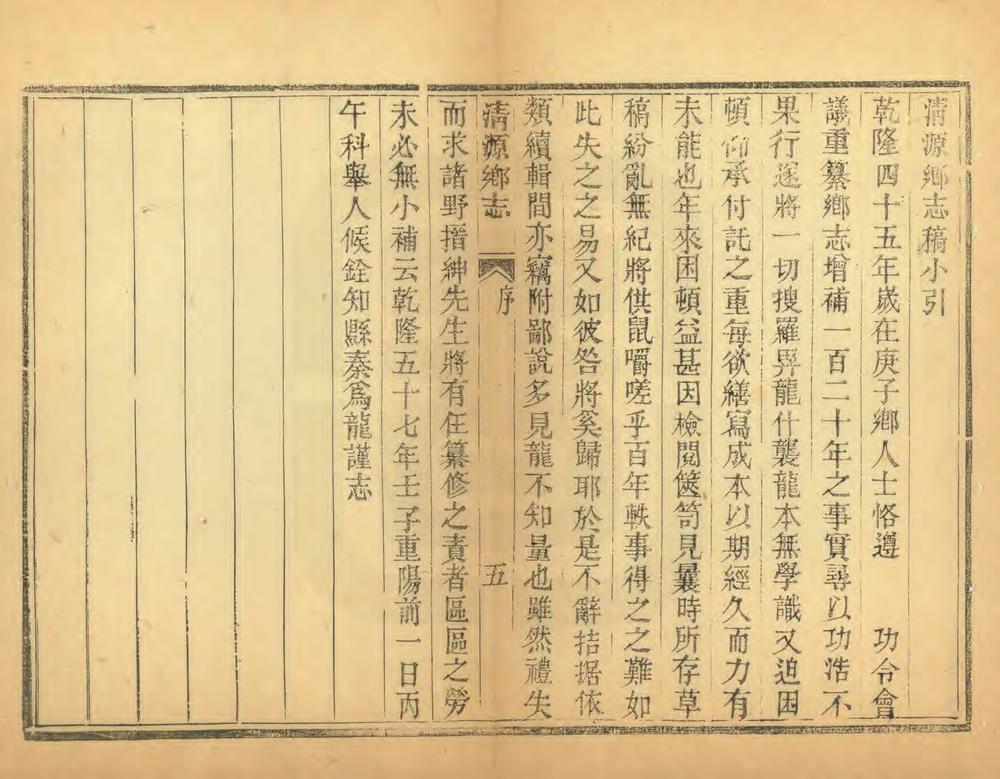 清源鄉志稿小引
乾隆四十五年嵗在庚子鄉人士恪遵 功令會
議重纂鄉志增補一百二十年之事實尋以功浩不
果行遂將一切搜羅畀龍什襲龍本無學識又迫困
頓仰承付託之重每欲繕寫成本以期經久而力有
未能也年來困頓益甚因檢閱篋笥見曩時所存草
稿紛亂無紀將供鼠嚼嗟乎百年軼事得之之難如
此失之之易又如彼咎將奚歸耶於是不辭拮据依
類續輯間亦竊附鄙說多見龍不知量也雖然禮失
清源鄉志 序 五
而求諸野搢紳先生將有任纂修之責者區區之勞
未必無小補云乾隆五十七年壬子重陽前一日丙
午科舉人候銓知縣秦爲龍謹志